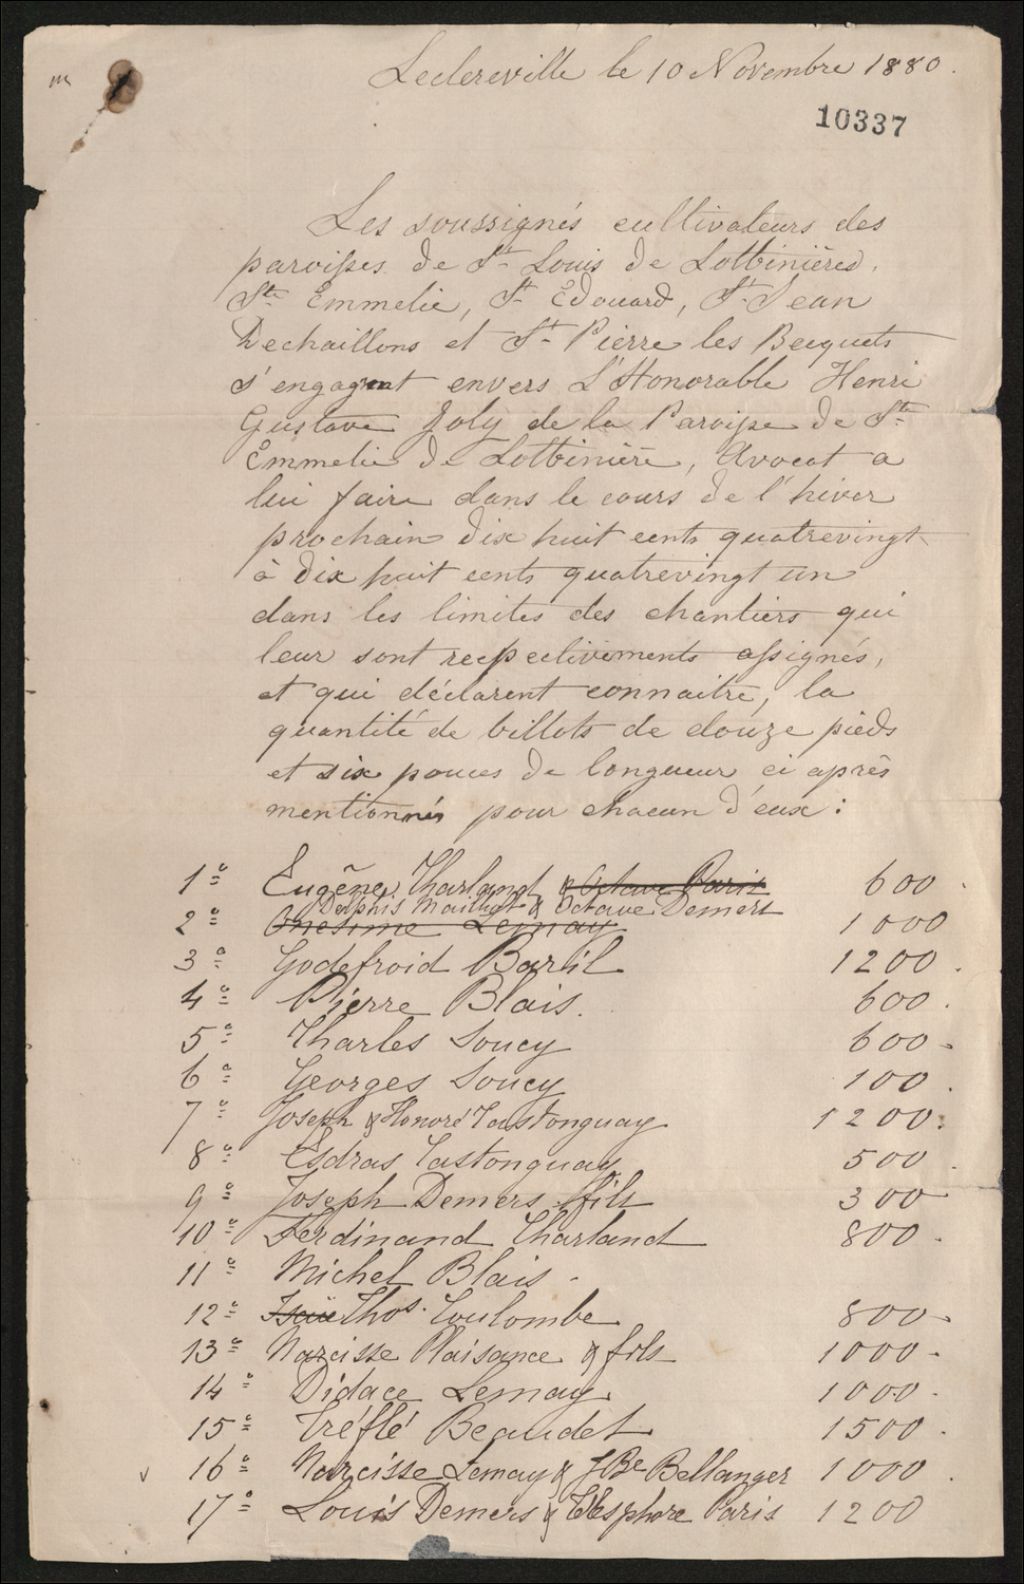 Leclercville le 10 Novembre 1880.
10337
Les soussignés cultivateurs des
paroisses de St Louis de Lotbinière,
Ste Emmelie, St Edouard, St Jean
Dechaillons et St Pierre les Becquets
s'engagent envers L'Honorable Henri
Gustave Joly de la Paroisse de Ste
Emmelie de Lotbinière, Avocat a
lui faire dans le cours de l'hiver
prochain dix huit cents quatrevingt
à dix huit cents quatrevingt un
dans les limites des chantiers qui
leur sont recpectivements assignés,
et qui déclarent connaitre, la
quantité de billots de douze pieds
et six pouces de longueur ci après
mentionnés pour chacun d'eux:
1o Eugène Charland & Octave Paris 600
Delphis Mailhot & Octave Demers
2o Onesime Lemay 1000
3o Godéfroid Baril 1200.
4o Pierre Blais. 600.
5o Charles Soucy 600-
6o Georges Soucy 100.
7o Joseph & Honoré Castonguay 1200.
8o Esdras Castonguay 500.
9o Joseph Demers fils 300
10o Ferdinand Charland 800.
11o Michel Blais -
12o Isaïe Thos. Coulombe 800-
13o Narcisse Plaisance & fils 1000-
14o Didace Lemay 1000.
15o Tréflé Beaudet 1500.
16o Narcisse Lemay & J Bte Bellanger 1000.
17o Louis Demers & Télesphore Paris 1200